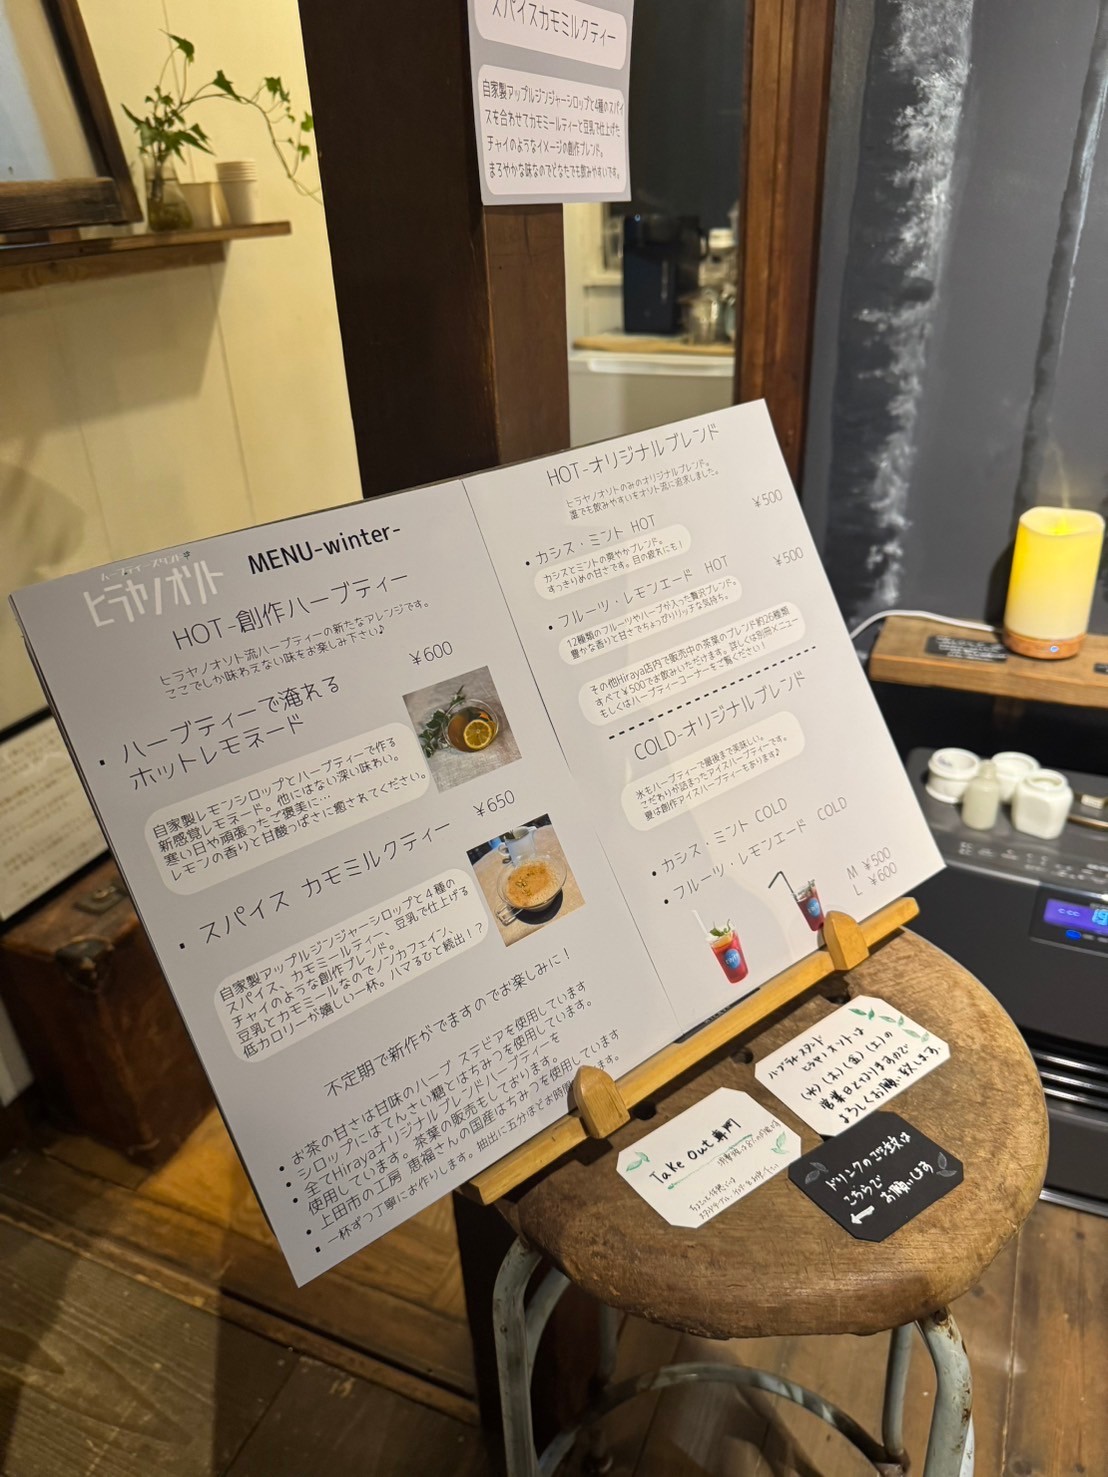 スパイスカモミルクティー
自家製アップルジンジャーシロップと4種のスパイ
スを合わせてカモミールティーと豆乳で仕上げた
チャイのようなイメージの創作ブレンド。
まろやかな味なのでどなたでも飲みやすいです。
ハーブティースタンド
ヒラヤノオソト
MENU-winter-
HOT-創作ハーブティー
ヒラヤノオソト流ハーブティーの新たなアレンジです。
ここでしか味わえない味をお楽しみ下さい♪
¥600
・ハーブティーで淹れる
ホットレモネード
自家製レモンシロップとハーブティーで作る
新感覚レモネード。他にはない深い味わい。
寒い日や頑張ったご褒美に…
レモンの香りと甘酸っぱさに癒されてください。
¥650
・スパイス カモミルクティー
自家製アップルジンジャーシロップと４種の
スパイス、カモミールティー、豆乳で仕上げる
チャイのような創作ブレンド。
豆乳とカモミールなのでノンカフェイン、
低カロリーが嬉しい一杯。ハマるひと続出！？
不定期で新作がでますのでお楽しみに！
・お茶の甘さは甘味のハーブ ステビアを使用しています
・シロップにはてんさい糖とはちみつを使用しています。
・全てHirayaオリジナルブレンドハーブティーを
使用しています。茶葉の販売もしております。
・上田市の工房 恵福さんの国産はちみつを使用しています
・一杯ずつ丁寧にお作りします。抽出に五分ほどお時間
ます。
HOT-オリジナルブレンド
ヒラヤノオソトのみのオリジナルブレンド。
誰でも飲みやすいをオソト流に追求しました。
¥500
・カシス・ミント HOT
カシスとミントの爽やかブレンド。
すっきりめの甘さです。目の疲れにも！
¥500
・フルーツ・レモンエード HOT
12種類のフルーツやハーブが入った贅沢ブレンド。
豊かな香りと甘さでちょっぴりリッチな気持ち。
その他Hiraya店内で販売中の茶葉のブレンド約26種類
すべて¥500でお飲みいただけます。詳しくは別冊メニュー
もしくはハーブティーコーナーをご覧ください！
COLD-オリジナルブレンド
氷もハーブティーで最後まで美味しい。
こだわりが詰まったアイスハーブティーです。
夏は創作アイスハーブティーもあります♪
・カシス・ミント COLD
・フルーツ・レモンエード COLD
M ¥500
L ¥600
ハーブティースタンド
ヒラヤノオソトは
(水)(木)(金)(土)の
営業日となりますので
よろしくお願い致します。
Take Out 専門
ドリンクのご注文は
こちらで
お願いします